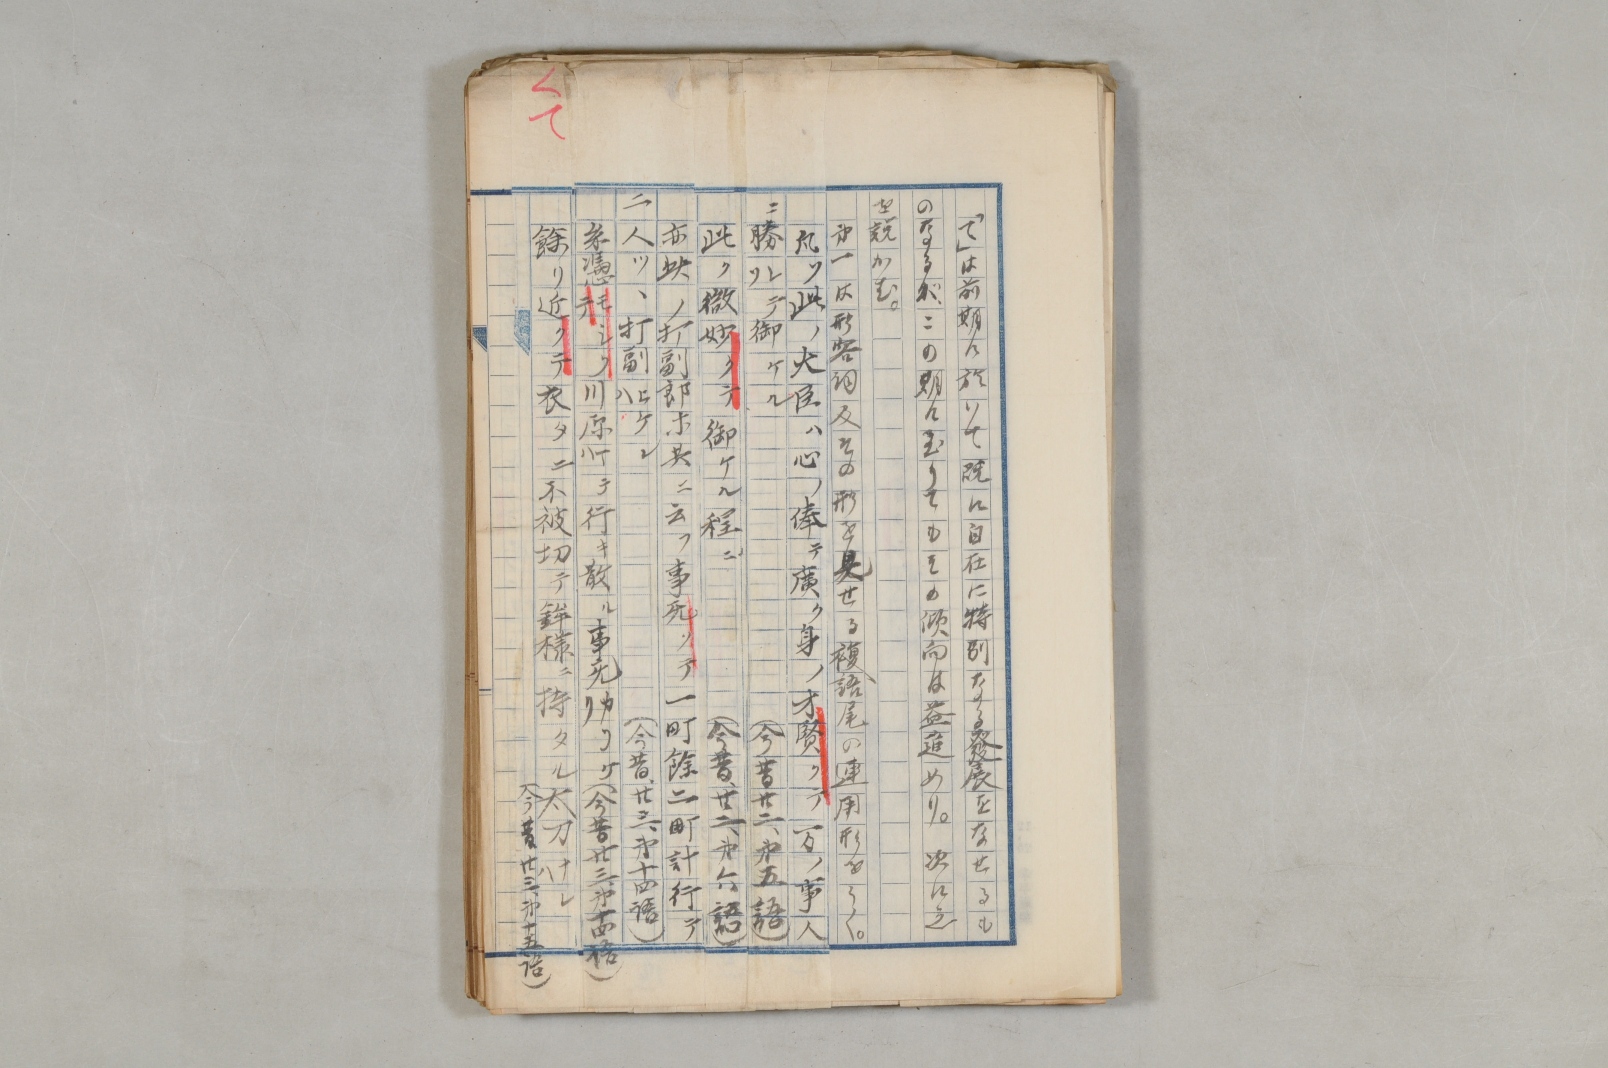 「て」は前期に於いて既に自在に特別なる發展をなせるも
のなるが、この期に至りてもその傾向は益進めり。次に之
を説かむ。
第一は形容詞及その形を見せる複語尾の連用形をうく。
凡ソ此ノ大臣ハ心ノ俸テ廣ク身ノ才賢クテ万ノ事人
ニ勝レテ御ケル
(今昔廿二、第五語)
此ク微妙クテ御ケル程ニ
(今昔、廿二、第六語)
亦此ノ打副郎等共ニ云フ事无ソテ一町餘二町計行テ
二人ツヽ打副ヒケレハ
(今昔、廿三、第十四語)
糸憑モシクテ川原ハテ行キ散ル事无カリケリ
(今昔廿三、第十四語)
餘リ近クテ衣タニ不被切テ鉾様ニ持タル太刀ナレハ
(今昔廿三、第十五語)
くて